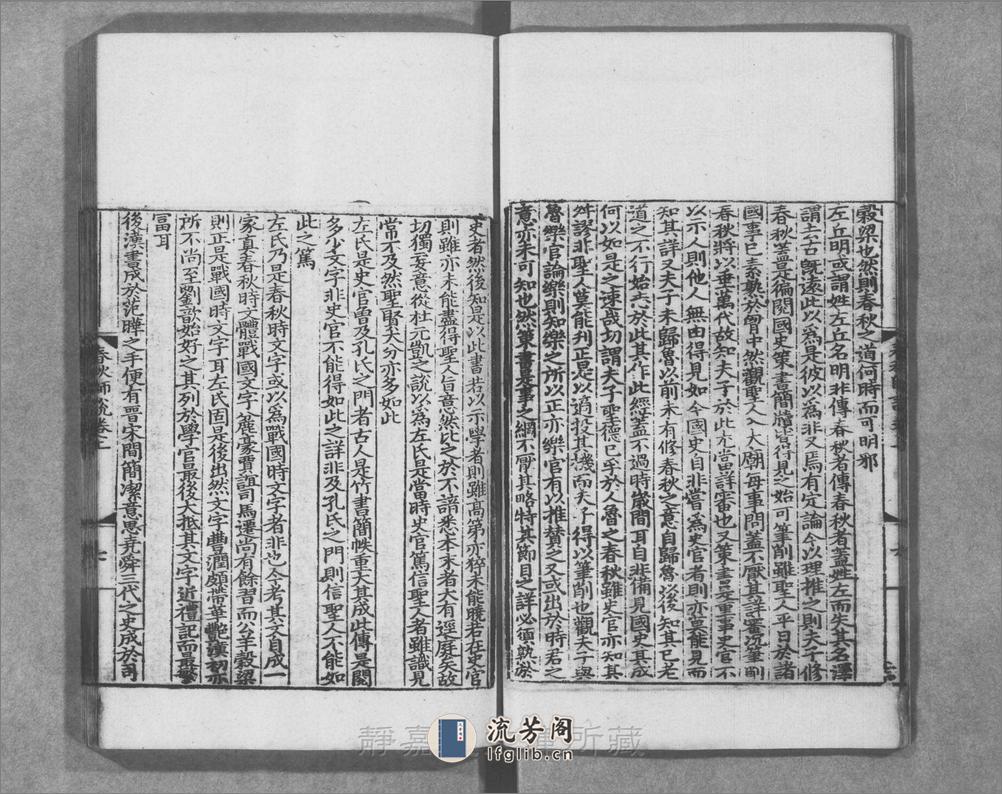 穀梁也然則春秋之道何時而可明邪
左丘明或謂姓左丘名明非傳春秋者傳春秋者蓋姓左而失其名澤
謂去古既遠此以為是彼以為非又焉有定論今以理推之則夫子修
春秋蓋是徧閱國史策書簡牘皆得見之始可筆削雖聖人平日於諸
國事已素熟於胷中然觀聖人入大廟每事問蓋不厭其詳審況筆削
春秋將以垂萬代故知夫子於此尤當詳審也又策書是重事史官不
以示人則他人無由得見如今國史自非嘗為史官者則亦莫能見而
知其詳又夫子未歸魯以前未有修春秋之意自歸魯以後知其已老
道之不行始志於此其作此經蓋不過時歲間耳自非備見國史其成
何以如是之速哉切謂夫子聖德已孚於人魯之春秋雖史官亦知其
舛謬非聖人莫能刋正是以適投其機而夫子得以筆削也觀夫子與
魯樂官論樂則知樂之所以正亦樂官有以推賛之又或出於時君之
意亦未可知也然策書是事之綱不厭其略特其節目之詳必須熟於
史者然後知是以此書若以示學者則雖高第亦猝未能曉若在史官
則雖亦未能盡得聖人旨意然比之於不諳悉本末者大有逕庭矣故
切獨妄意從杜元凱之說以為左氏是當時史官篤信聖人者雖識見
常不及然聖賢大分亦多如此
左氏是史官曽及孔氏之門者古人是竹書簡帙重大其成此傳是閱
多少文字非史官不能得如此之詳非及孔氏之門則信聖人不能如
此之篤
左氏乃是春秋時文字或以為戰國時文字者非也今考其文自成一
家真春秋時文體戰國文字麄豪賈誼司馬遷尚有餘習而公羊穀梁
則正是戰國時文字耳左氏固是後出然文字豊潤頗帶華艷漢初亦
所不尚至劉歆始好之其列於學官最後大抵其文字近禮記而最繁
冨耳
後漢書成於范曄之手便有晋宋間簡潔意思堯舜三代之史成於司
春秋師說卷上
七
流芳阁
lfglib.cn